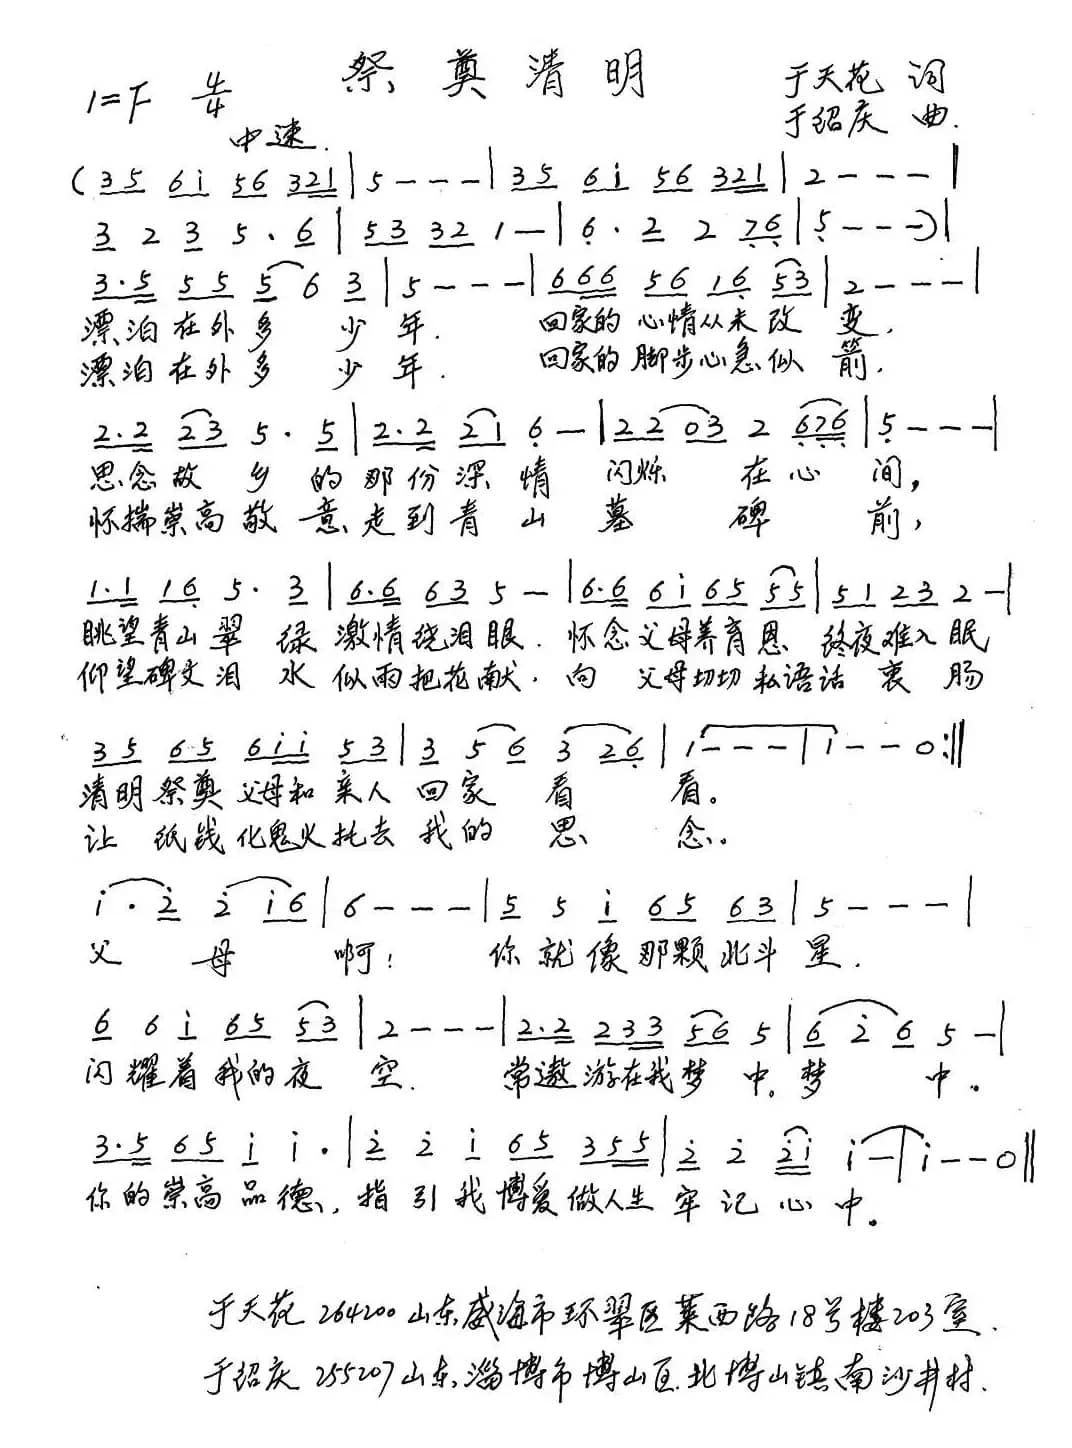 祭奠清明
1=F 4/4
于天花 词
于绍庆 曲.
中速.
(35 6i 56 321|5---|35 6i 56 321|2---|
3 2 3 5·6|53 32 1—|6·2 2 76|5---)|
3·5 55 5 6 3|5---|666 56 16 53|2---|
漂泊在外多 少年. 回家的心情从未改 变,
漂泊在外多 少年. 回家的脚步心急似 箭,
2·2 23 5·5|2·2 21 6—|22 03 2 676|5---|
思念故 乡 的那份深 情 闪烁 在心 间,
怀揣崇高敬 意走到青 山 墓 碑 前,
1·1 16 5·3|6·6 63 5—|6·6 6i 65 55|51 23 2—|
眺望青山翠 绿 激情绕泪眼. 怀念父母养育恩 终夜难入眠
仰望碑文泪 水 似雨把花献. 向 父母切切私语话 衷 肠
35 65 6ii 53|3 5 6 3 26|1---|i--0:‖
清明祭奠父母和亲人 回家 看 看。
让 纸钱化鬼火托去 我的 思 念。
i·2 2 i6|6---|5 5 i 65 63|5---|
父 母 啊! 你就像那颗北斗 星.
6 6 i 65 53|2---|2·2 233 56 5|6 2 6 5—|
闪耀着我的夜 空. 常遨游在我梦 中。梦 中.
3·5 65 i i·|2 2 i 65 355|2 2 2i i—|i--0‖
你的崇高品德,指引我博爱做人生牢记心中。
于天花 264200 山东威海市环翠区莱西路18号楼203室.
于绍庆 255207 山东淄博市博山区北博山镇南沙井村.